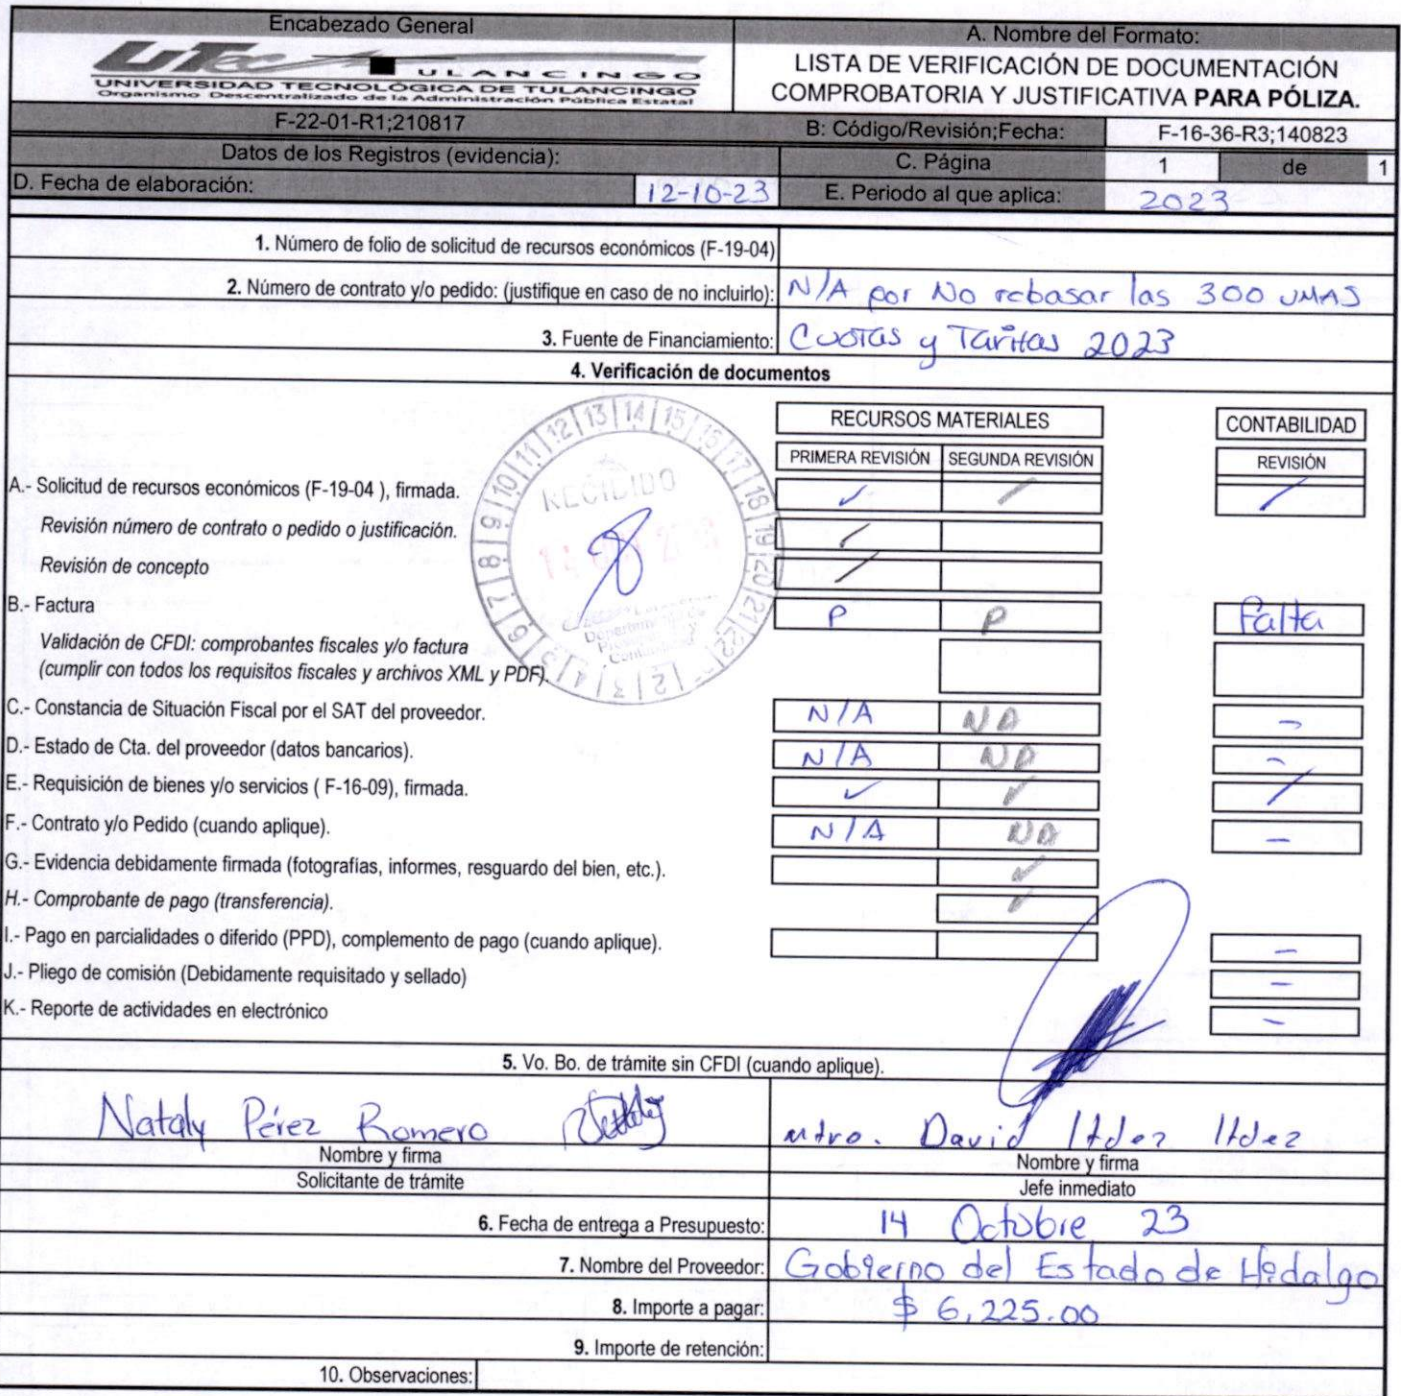 Encabezado General
A. Nombre del Formato:
UTec TULANCINGO
UNIVERSIDAD TECNOLÓGICA DE TULANCINGO
Organismo Descentralizado de la Administración Pública Estatal
LISTA DE VERIFICACIÓN DE DOCUMENTACIÓN
COMPROBATORIA Y JUSTIFICATIVA PARA PÓLIZA.
F-22-01-R1;210817
B: Código/Revisión;Fecha: F-16-36-R3;140823
Datos de los Registros (evidencia):
C. Página 1 de 1
D. Fecha de elaboración: 12-10-23
E. Periodo al que aplica: 2023
1. Número de folio de solicitud de recursos económicos (F-19-04)
2. Número de contrato y/o pedido: (justifique en caso de no incluirlo): N/A por No rebasar las 300 UMAS
3. Fuente de Financiamiento: Cuotas y Tarifas 2023
4. Verificación de documentos
RECURSOS MATERIALES CONTABILIDAD
PRIMERA REVISIÓN SEGUNDA REVISIÓN REVISIÓN
A.- Solicitud de recursos económicos (F-19-04 ), firmada. ✓ / /
Revisión número de contrato o pedido o justificación. ✓
Revisión de concepto /
B.- Factura P P Falta
Validación de CFDI: comprobantes fiscales y/o factura
(cumplir con todos los requisitos fiscales y archivos XML y PDF).
C.- Constancia de Situación Fiscal por el SAT del proveedor. N/A NA -
D.- Estado de Cta. del proveedor (datos bancarios). N/A NA -
E.- Requisición de bienes y/o servicios ( F-16-09), firmada. ✓ ✓ /
F.- Contrato y/o Pedido (cuando aplique). N/A NA -
G.- Evidencia debidamente firmada (fotografías, informes, resguardo del bien, etc.). ✓
H.- Comprobante de pago (transferencia). ✓
I.- Pago en parcialidades o diferido (PPD), complemento de pago (cuando aplique). -
J.- Pliego de comisión (Debidamente requisitado y sellado) -
K.- Reporte de actividades en electrónico -
RECIBIDO
5. Vo. Bo. de trámite sin CFDI (cuando aplique).
Nataly Pérez Romero
Mtro. David Hdez Hdez
Nombre y firma
Nombre y firma
Solicitante de trámite
Jefe inmediato
6. Fecha de entrega a Presupuesto: 14 Octubre 23
7. Nombre del Proveedor: Gobierno del Estado de Hidalgo
8. Importe a pagar: $ 6,225.00
9. Importe de retención:
10. Observaciones: